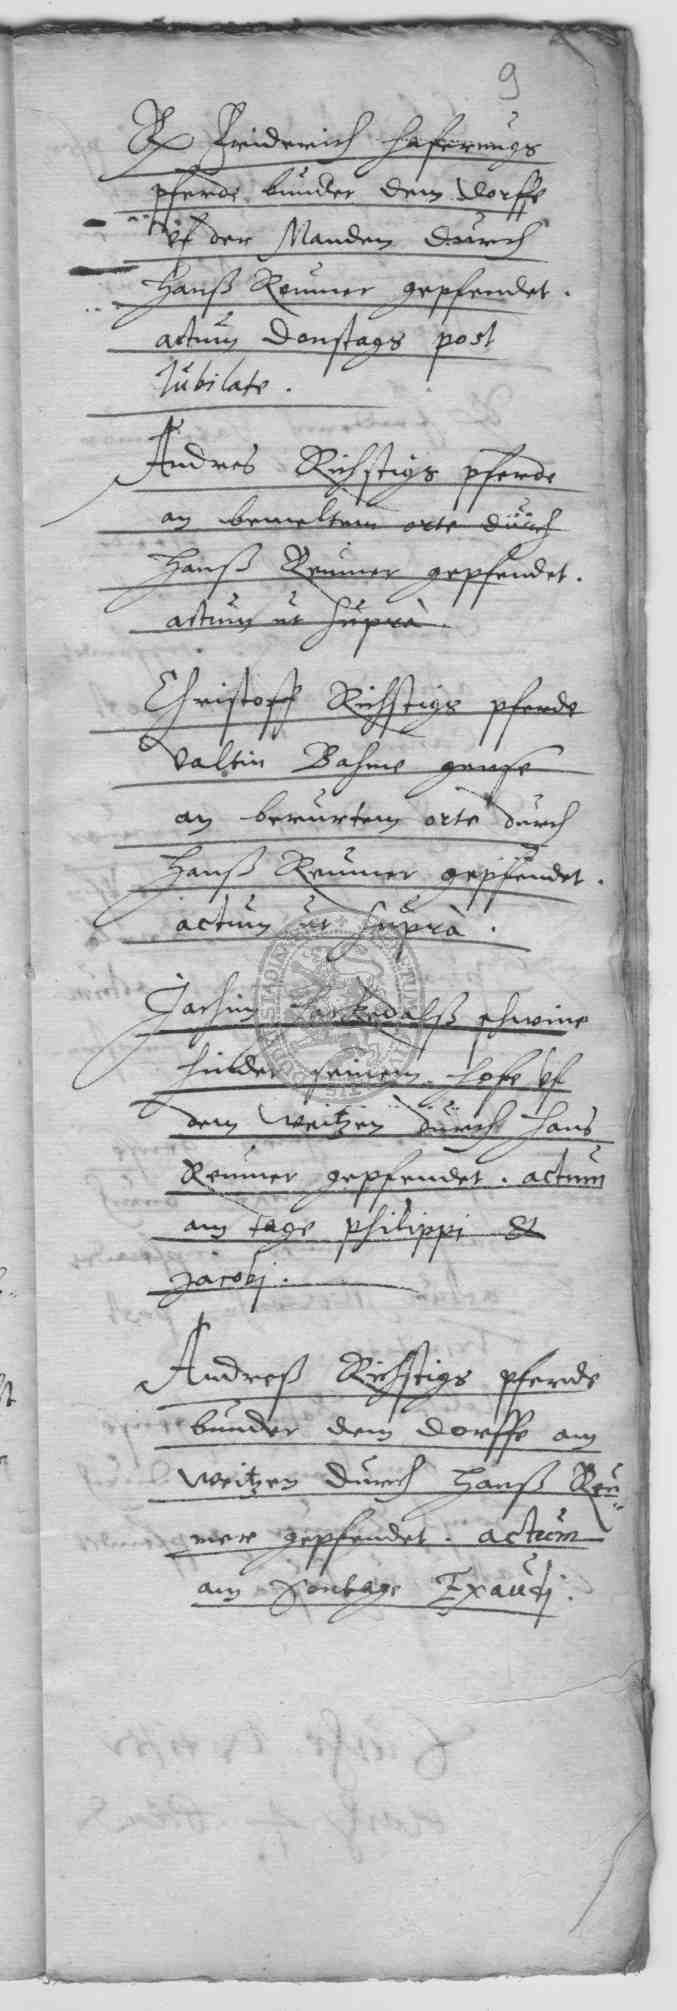 9
Friderich Haferungs
pferde bunder dem Dorffe
vf der Manden durch
Hanß Reumer gepfendet.
actum Donstags post
Jubilate.
Andres Richstigs pferde
an bemeltem orte durch
Hanß Reumer gepfendet.
actum ut supra.
Christoff Richstigs pferde
Valtin Bahme gense
an berurtem orte durch
Hanß Reumer gepfendet.
actum ut suprà.
Jachim schwine
hinder seinem hofe vf
dem Weitzen durch Hans
Reumer gepfendet. actum
am tage philippi et
Jacobj.
Andreß Richstigs pferde
bunder dem Dorffe am
Weitzen durch Hanß Reu-
mer gepfendet. actum
am Sontage Exaudj.